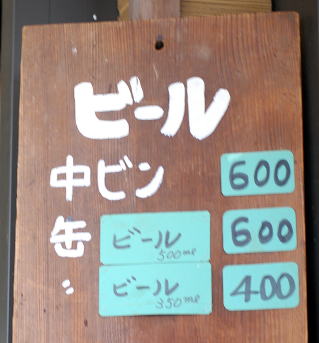 ビール
中ビン 600
缶 ビール 500ml 600
〃 ビール 350ml 400